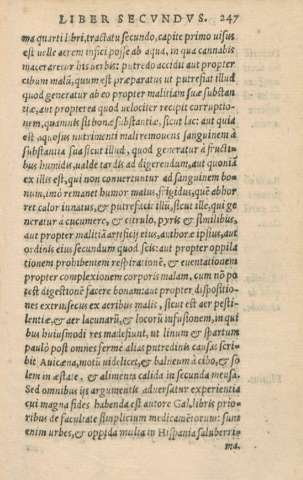 LIBER SECVNDVS. 247
ma quarti libri, tractatu secundo, capite primo uisus
est uelle aerem infici posse ab aqua, in qua cannabis
maceraretur his uerbis: putredo accidit aut propter
cibum malũ, quum est præparatus ut putrefiat illud
quod generatur ab eo propter malitiam suæ substan
tiæ, aut propterea quod uelociter recipit corruptio-
nem, quamuis sit bonæ substantiæ, sicut lac: aut quia
est aquosus nutrimenti mali remouens sanguinem à
substantia sua sicut illud, quod generatur à fructi-
bus humidis, ualde tardis ad digerendum, aut quoniã
ex illis est, qui non conuertuntur ad sanguinem bo-
num, imò remanet humor malus, frigidus, quẽ abhor
ret calor innatus, & putrefacit illũ, sicut ille, qui ge
neratur à cucumere, & citrulo, pyris & similibus,
aut propter malitiã artificij eius, author ipsius, aut
ordinis eius secundum quod scis: aut propter oppila
tionem prohibentem respirationẽ, & euentationem
propter complexionem corporis malam, cum nõ po
test digestionẽ facere bonam: aut propter dispositio-
nes extrinsecus ex aeribus malis, sicut est aer pesti-
lentiæ, & aer lacunarũ, & locorũ infusionem, in qui
bus huiusmodi res madefiunt, ut linum & spartum
paulò post omnes fermè alias putredinis causas scri-
bit Auicena, motũ uidelicet, & balneum à cibo, & so
lem in æstate, & alimenta calida in secunda mensa.
Sed omnibus ijs argumentis aduersatur experientia
cui magna fides habenda est autore Gal. libris prio-
ribus de facultate simplicium medicamẽtorum: sunt
enim urbes, & oppida multa in Hispania saluberri-
ma.